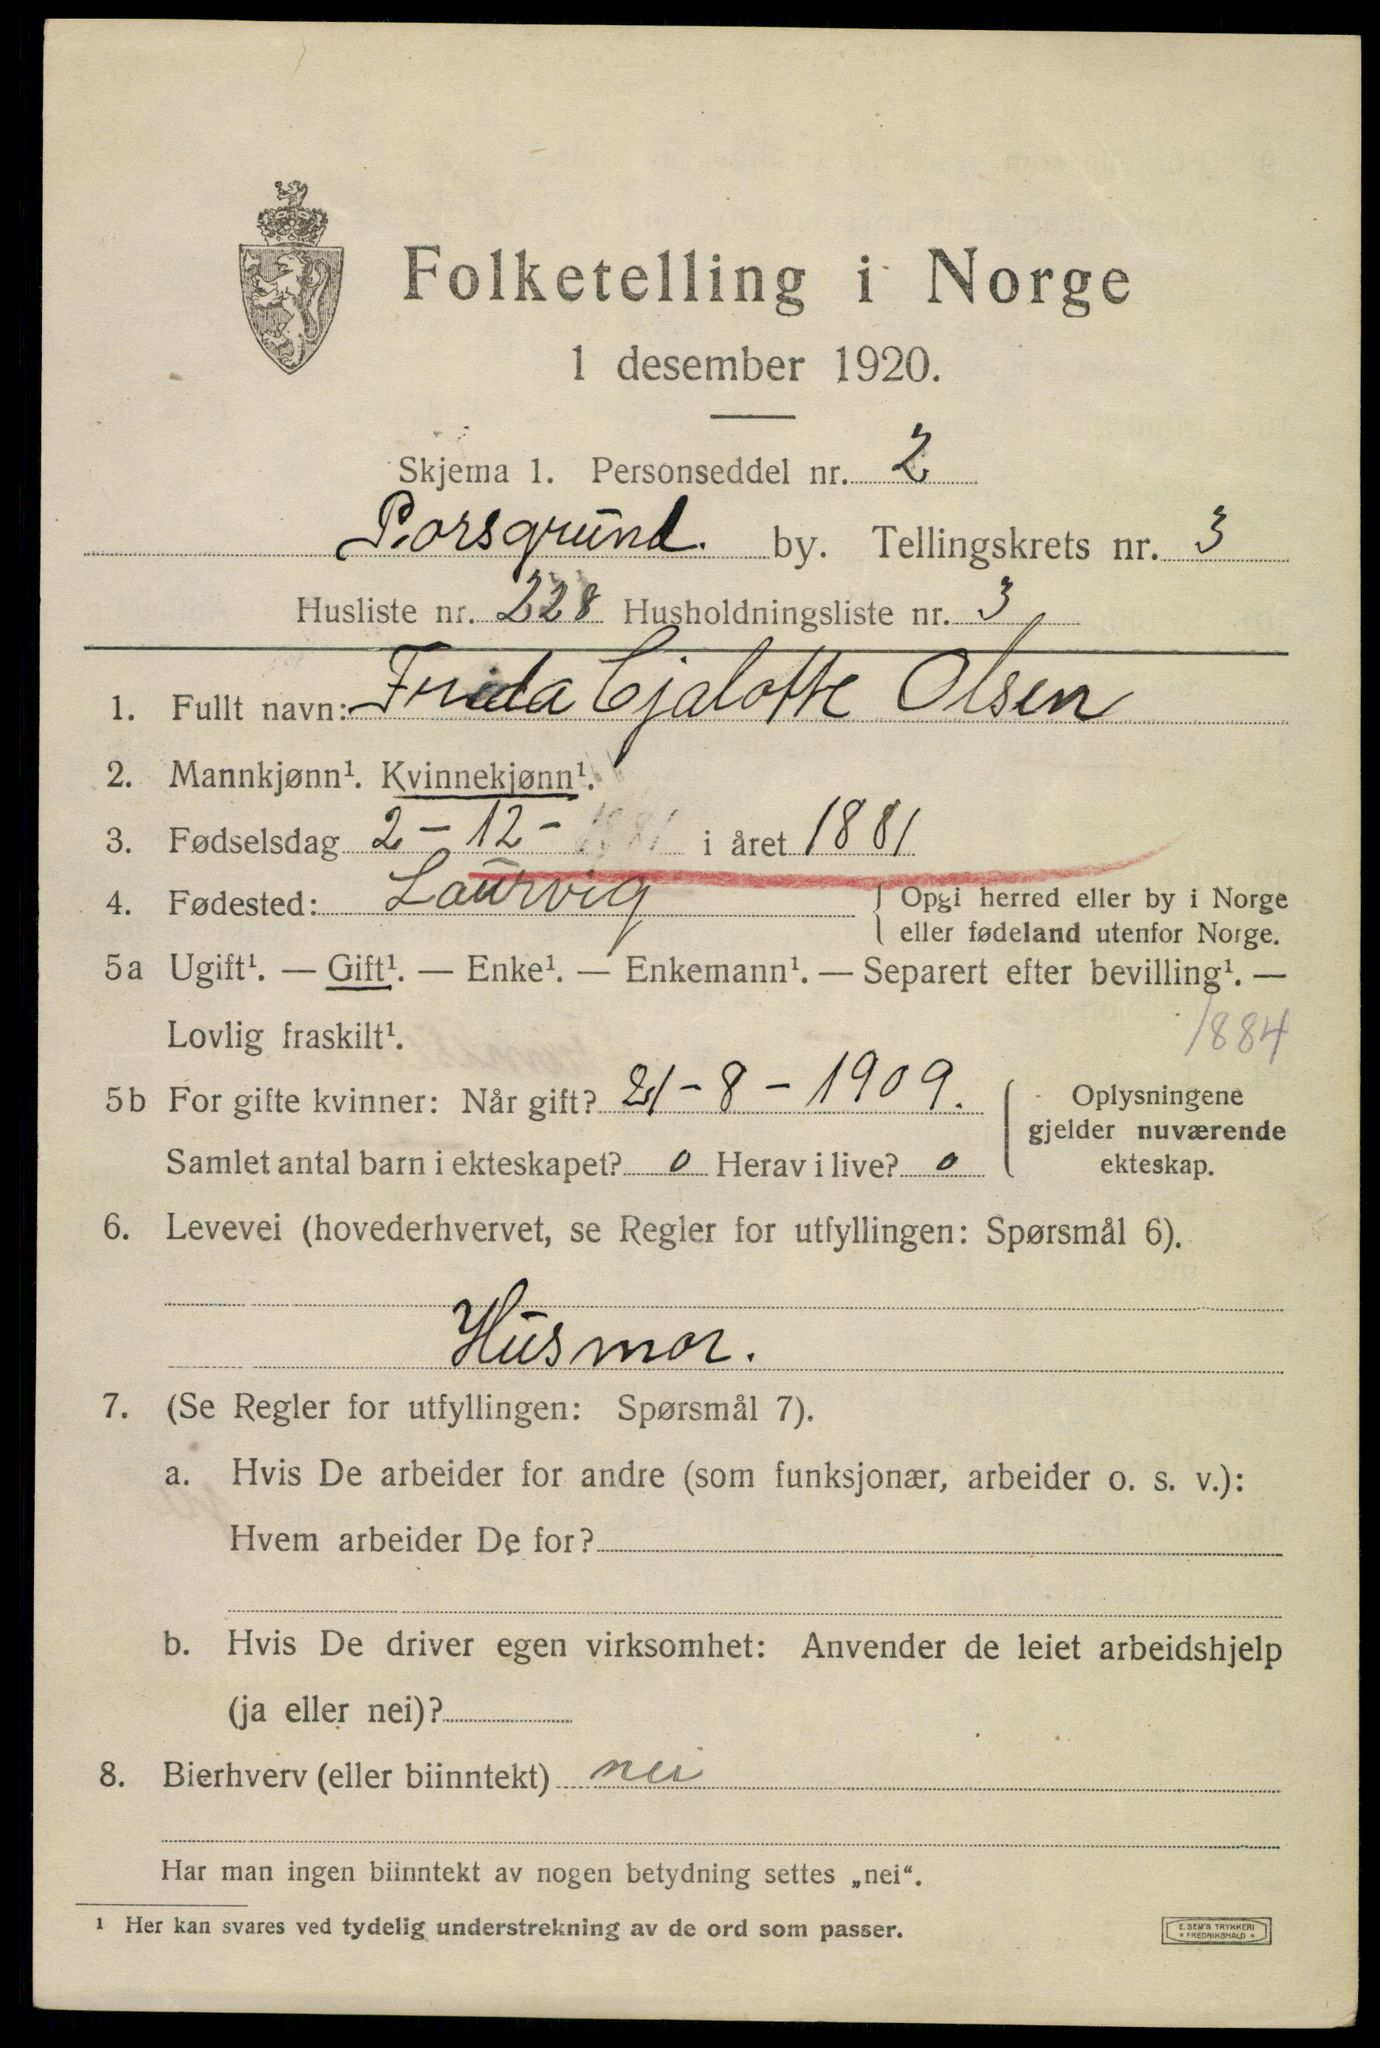 Folketelling i Norge
1 desember 1920.
Skjema 1. Personseddel nr. 2
Porsgrund. by. Tellingskrets nr. 3
Husliste nr. 228 Husholdningsliste nr. 3
1. Fullt navn: Frida Cjalotte Olsen
2. Mannkjønn¹. Kvinnekjønn¹.
3. Fødselsdag 2 - 12 - 1881 i året 1881
4. Fødested: Laurvig { Opgi herred eller by i Norge
eller fødeland utenfor Norge.
5a Ugift¹. — Gift¹. — Enke¹. — Enkemann¹. — Separert efter bevilling¹. —
Lovlig fraskilt¹.
1884
5b For gifte kvinner: Når gift? 21 - 8 - 1909. { Oplysningene
gjelder nuværende
Samlet antal barn i ekteskapet? 0 Herav i live? 0 ekteskap.
6. Levevei (hovederhvervet, se Regler for utfyllingen: Spørsmål 6).
Husmor.
7. (Se Regler for utfyllingen: Spørsmål 7).
a. Hvis De arbeider for andre (som funksjonær, arbeider o. s. v.):
Hvem arbeider De for?
b. Hvis De driver egen virksomhet: Anvender de leiet arbeidshjelp
(ja eller nei)?
8. Bierhverv (eller biinntekt) nei
Har man ingen biinntekt av nogen betydning settes „nei“.
¹ Her kan svares ved tydelig understrekning av de ord som passer.
E. SEM'S TRYKKERI
* FREDRIKSHALD *